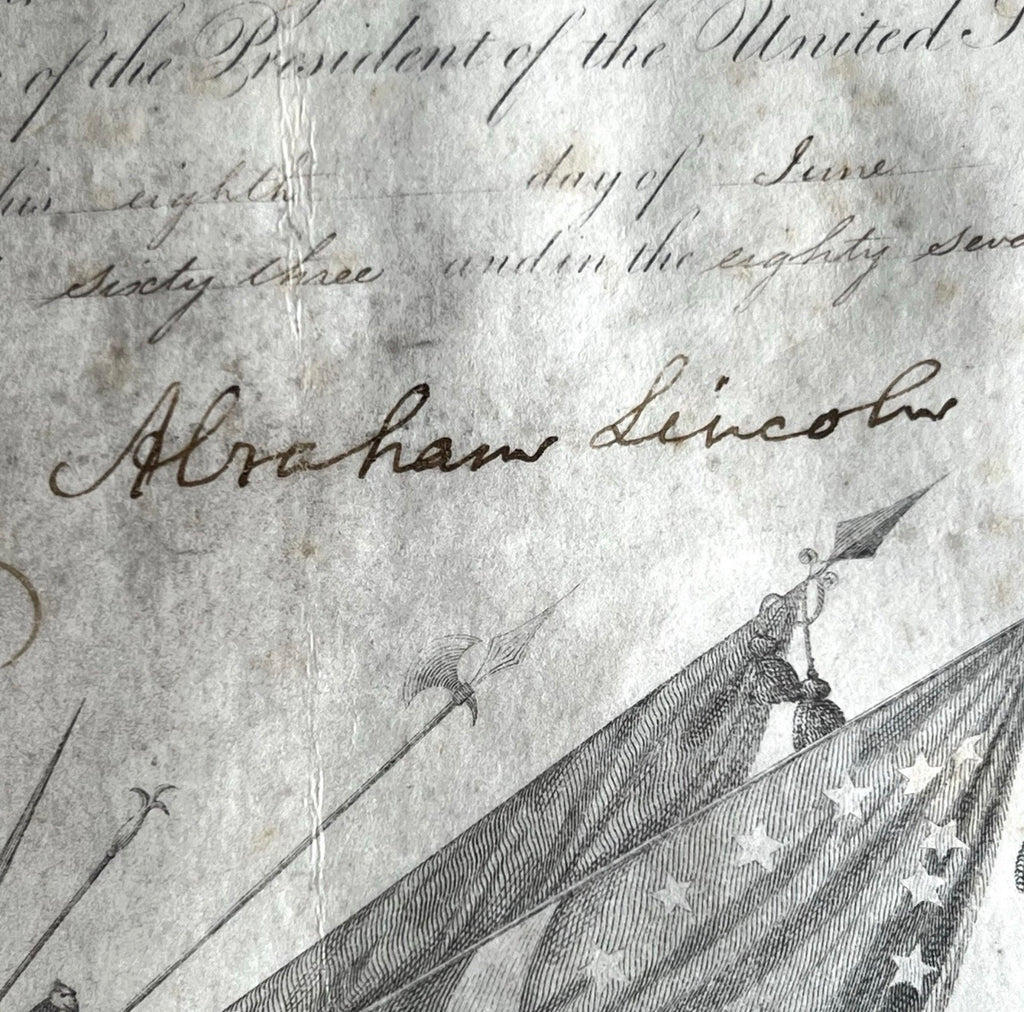 of the President of the United S
his eighth day of June
sixty three and in the eighty seve
Abraham Lincoln